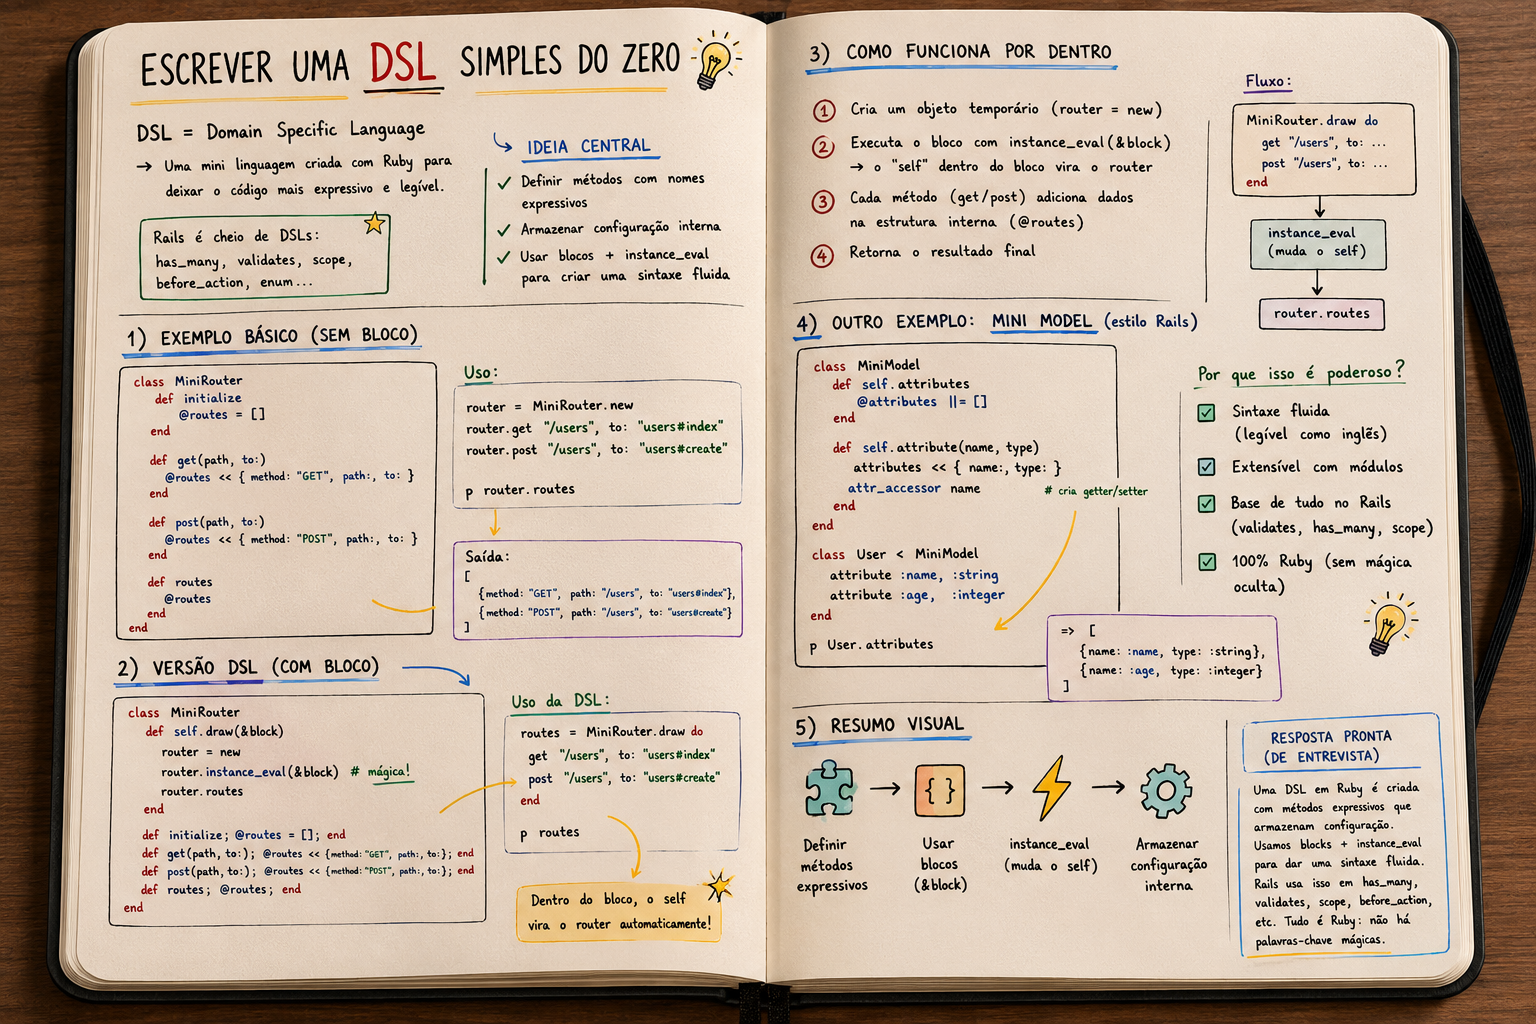 ESCREVER UMA DSL SIMPLES DO ZERO
DSL = Domain Specific Language
→ Uma mini linguagem criada com Ruby para
deixar o código mais expressivo e legível.
Rails é cheio de DSLs:
has_many, validates, scope,
before_action, enum...
IDEIA CENTRAL
✓ Definir métodos com nomes
expressivos
✓ Armazenar configuração interna
✓ Usar blocos + instance_eval
para criar uma sintaxe fluida
1) EXEMPLO BÁSICO (SEM BLOCO)
class MiniRouter
def initialize
@routes = []
end
def get(path, to:)
@routes << { method: "GET", path:, to: }
end
def post(path, to:)
@routes << { method: "POST", path:, to: }
end
def routes
@routes
end
end
Uso:
router = MiniRouter.new
router.get "/users", to: "users#index"
router.post "/users", to: "users#create"
p router.routes
Saída:
[
{method: "GET", path: "/users", to: "users#index"},
{method: "POST", path: "/users", to: "users#create"}
]
2) VERSÃO DSL (COM BLOCO)
class MiniRouter
def self.draw(&block)
router = new
router.instance_eval(&block) # mágica!
router.routes
end
def initialize; @routes = []; end
def get(path, to:); @routes << {method:"GET", path:, to:}; end
def post(path, to:); @routes << {method:"POST", path:, to:}; end
def routes; @routes; end
end
Uso da DSL:
routes = MiniRouter.draw do
get "/users", to: "users#index"
post "/users", to: "users#create"
end
p routes
Dentro do bloco, o self
vira o router automaticamente!
3) COMO FUNCIONA POR DENTRO
1 Cria um objeto temporário (router = new)
2 Executa o bloco com instance_eval(&block)
→ o "self" dentro do bloco vira o router
3 Cada método (get/post) adiciona dados
na estrutura interna (@routes)
4 Retorna o resultado final
Fluxo:
MiniRouter.draw do
get "/users", to: ...
post "/users", to: ...
end
instance_eval
(muda o self)
router.routes
4) OUTRO EXEMPLO: MINI MODEL (estilo Rails)
class MiniModel
def self.attributes
@attributes ||= []
end
def self.attribute(name, type)
attributes << { name:, type: }
attr_accessor name # cria getter/setter
end
end
class User < MiniModel
attribute :name, :string
attribute :age, :integer
end
p User.attributes
=> [
{name: :name, type: :string},
{name: :age, type: :integer}
]
Por que isso é poderoso?
Sintaxe fluida
(legível como inglês)
Extensível com módulos
Base de tudo no Rails
(validates, has_many, scope)
100% Ruby (sem mágica
oculta)
5) RESUMO VISUAL
{ }
Definir
métodos
expressivos
Usar
blocos
(&block)
instance_eval
(muda o self)
Armazenar
configuração
interna
RESPOSTA PRONTA
(DE ENTREVISTA)
Uma DSL em Ruby é criada
com métodos expressivos que
armazenam configuração.
Usamos blocks + instance_eval
para dar uma sintaxe fluida.
Rails usa isso em has_many,
validates, scope, before_action,
etc. Tudo é Ruby: não há
palavras-chave mágicas.